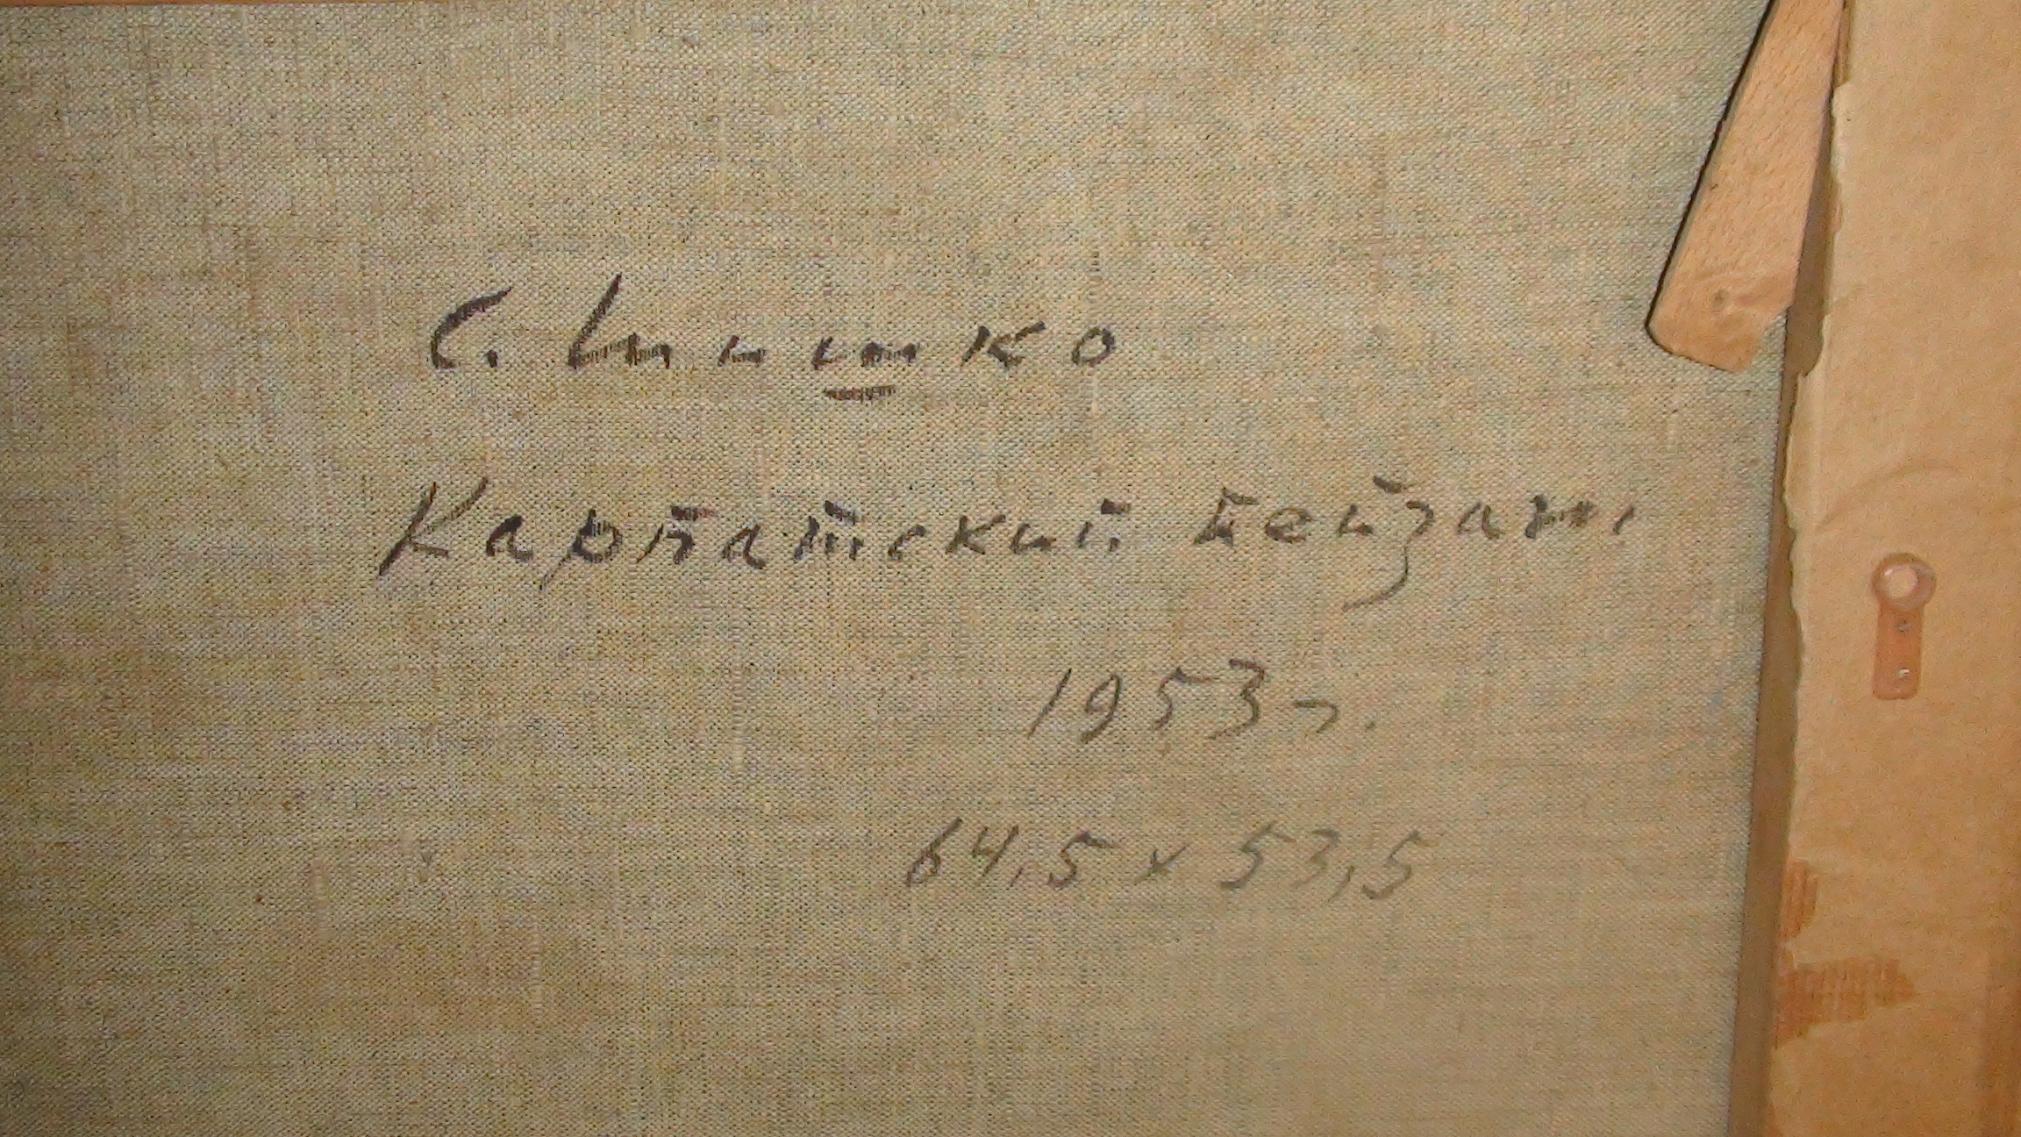 С. Шишко
Карпатский пейзаж
1953 г.
64,5 x 53,5